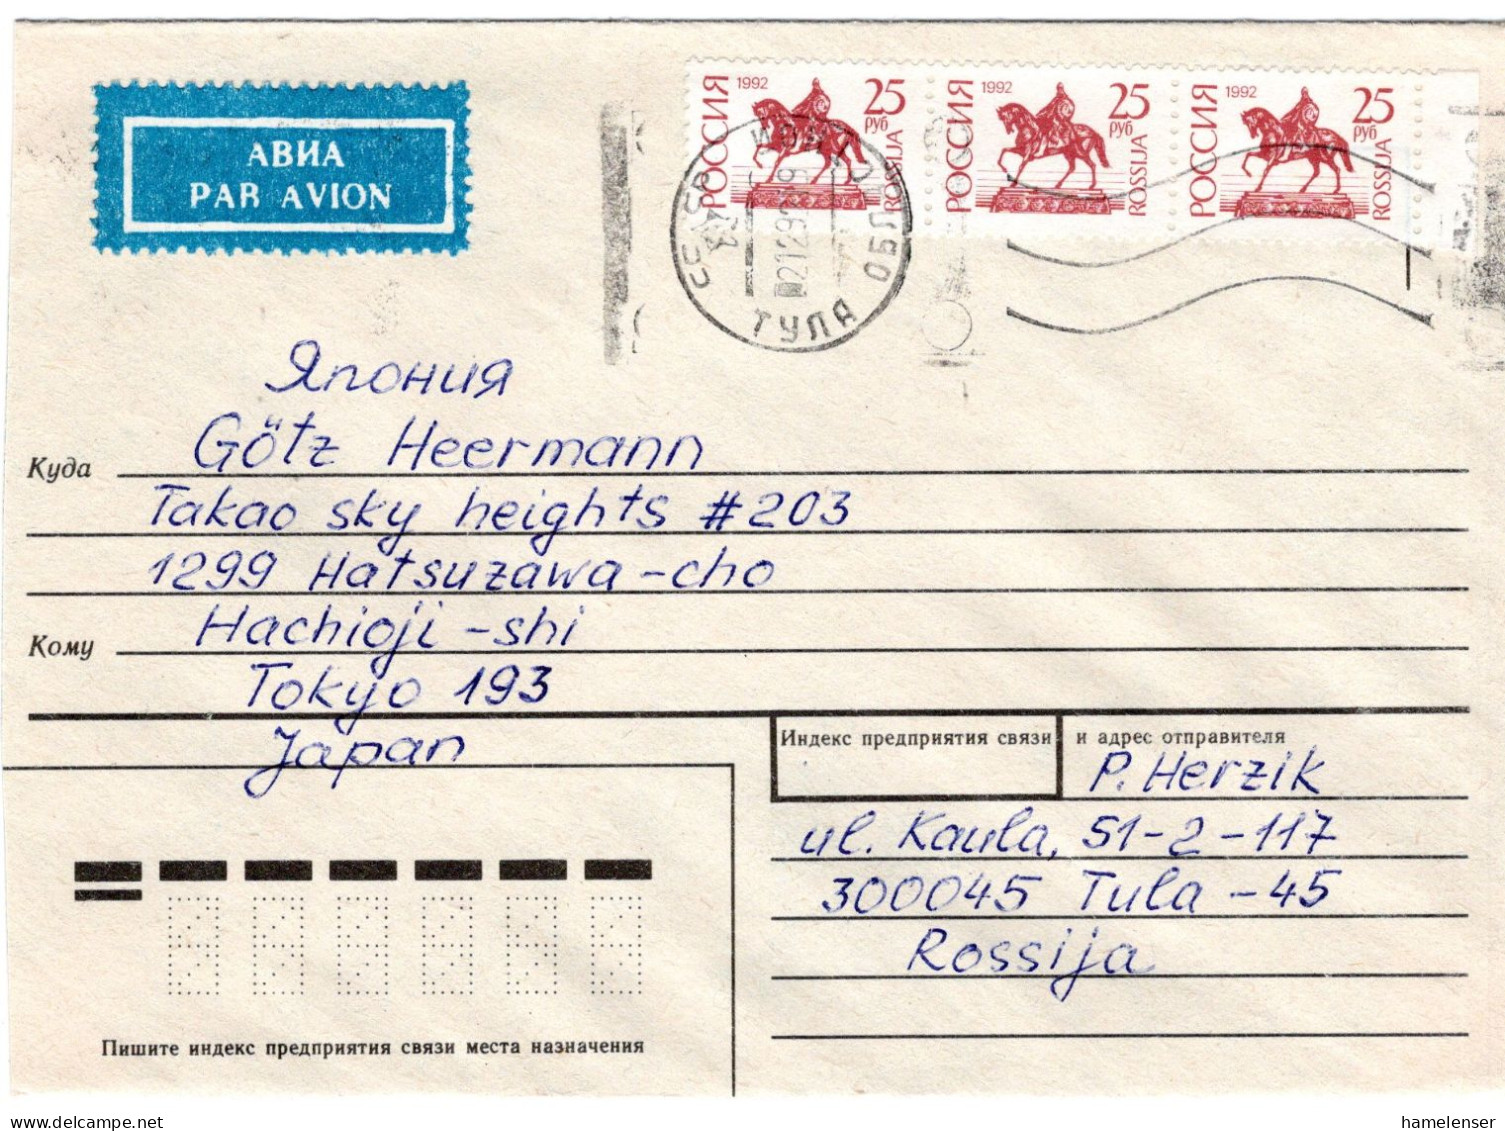 АВИА
PAR AVION
РОССИЯ 1992 25 руб ROSSIJA
РОССИЯ 1992 25 руб ROSSIJA
РОССИЯ 1992 25 руб ROSSIJA
СССР
ТУЛА
ОБЛ
Япония
Götz Heermann
Куда
Takao sky heights #203
1299 Hatsuzawa-cho
Hachioji-shi
Кому
Tokyo 193
Japan
Индекс предприятия связи и адрес отправителя
P. Herzik
ul. Kaula, 51-2-117
300045 Tula-45
Rossija
Пишите индекс предприятия связи места назначения
delcampe.net
hamelenser